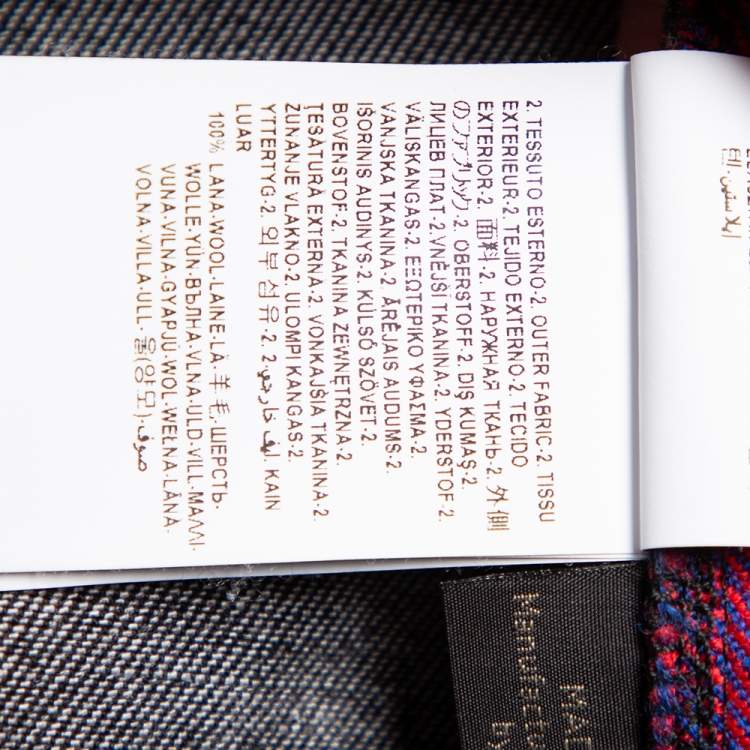 2. TESSUTO ESTERNO·2. OUTER FABRIC·2. TISSU
EXTERIEUR·2. TEJIDO EXTERNO·2. TECIDO
EXTERIOR·2. 面料·2. НАРУЖНАЯ ТКАНЬ·2. 外側
のファブリック·2. OBERSTOFF·2. DIŞ KUMAŞ·2.
ЛИЦЕВ ПЛАТ·2.VNĚJŠÍ TKANINA·2. YDERSTOF·2.
VÄLISKANGAS·2. ΕΞΩΤΕΡΙΚΟ ΥΦΑΣΜΑ·2.
VANJSKA TKANINA·2. ĀRĒJAIS AUDUMS·2.
IŠORINIS AUDINYS·2. KÜLSŐ SZÖVET·2.
BOVENSTOF·2. TKANINA ZEWNĘTRZNA·2.
ŢESĂTURĂ EXTERNA·2. VONKAJŠIA TKANINA·2.
ZUNANJE VLAKNO·2. ULOMPI KANGAS·2.
YTTERTYG·2. 외부섬유·2. ليف خارجي·2. KAIN
LUAR
100% LANA·WOOL·LAINE·LÃ·羊毛·ШЕРСТЬ·
WOLLE·YÜN·ВЪЛНА·VLNA·ULD·VILL·ΜΑΛΛΙ·
VUNA·VILNA·GYAPJÚ·WOL·WEŁNA·LÂNĂ·
VOLNA·VILLA·ULL·울(양모)·صوف·
إيلاستين
MAD
Manufacto
by